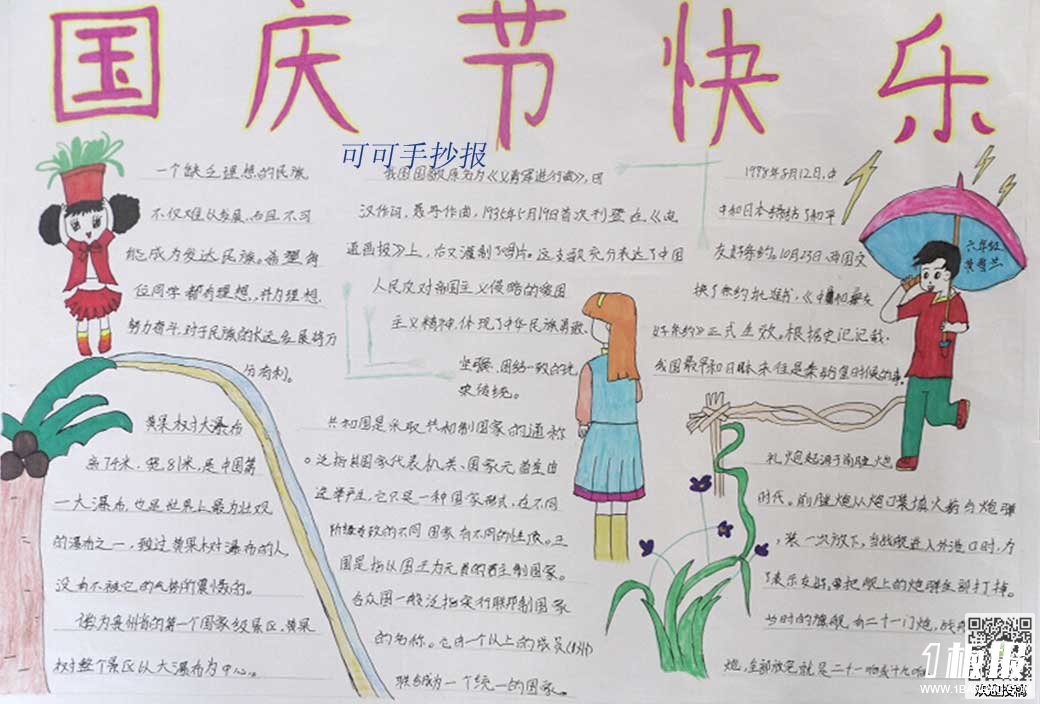 国庆节快乐
可可手抄报
一个缺乏理想的民族
不仅难以发展,而且不可
能成为发达民族。希望每
位同学都有理想,并为理想
努力奋斗,对于民族的长远发展将万
分有利。
我国国歌原名为《义勇军进行曲》,田
汉作词,聂耳作曲,1935年5月19日首次刊登在《电
通画报》上,后又灌制了唱片。这支歌充分表达了中国
人民反对帝国主义侵略的爱国
主义精神,体现了中华民族勇敢、
坚强、团结一致的优
荣传统。
1978年8月12日,中
中和日本缔结了和平
友好条约。10月23日,两国交
换了条约批准书,《中日和平友
好条约》正式生效。根据史记记载,
我国最早和日本来往是秦始皇时候的事。
六年级
黄果树大瀑布
高74米,宽81米,是中国第
一大瀑布,也是世界上最为壮观
的瀑布之一,到过黄果树瀑布的人,
没有不被它的气势所震憾的。
誉为贵州省的第一个国家级景区,黄果
树整个景区以大瀑布为中心。
共和国是采取共和制国家的通称
。泛指其国家代表机关、国家元首是由
选举产生,它只是一种国家形式,在不同
阶级专政的不同国家有不同的性质。王
国是指以国王为元首的君主制国家。
合众国一般泛指实行联邦制国家
的名称。它由一个以上的成员(州)
联合成为一个统一的国家。
礼炮起源于前膛炮
时代。前膛炮从炮口装填火药与炮弹
,装一次放一下,当战舰进入外港口时,为
了表示友好,要把舰上的炮弹全部打掉。
当时的旗舰,有二十一门炮,战
炮,全部放完就是二十一响或十九响
1极报
欢迎投稿